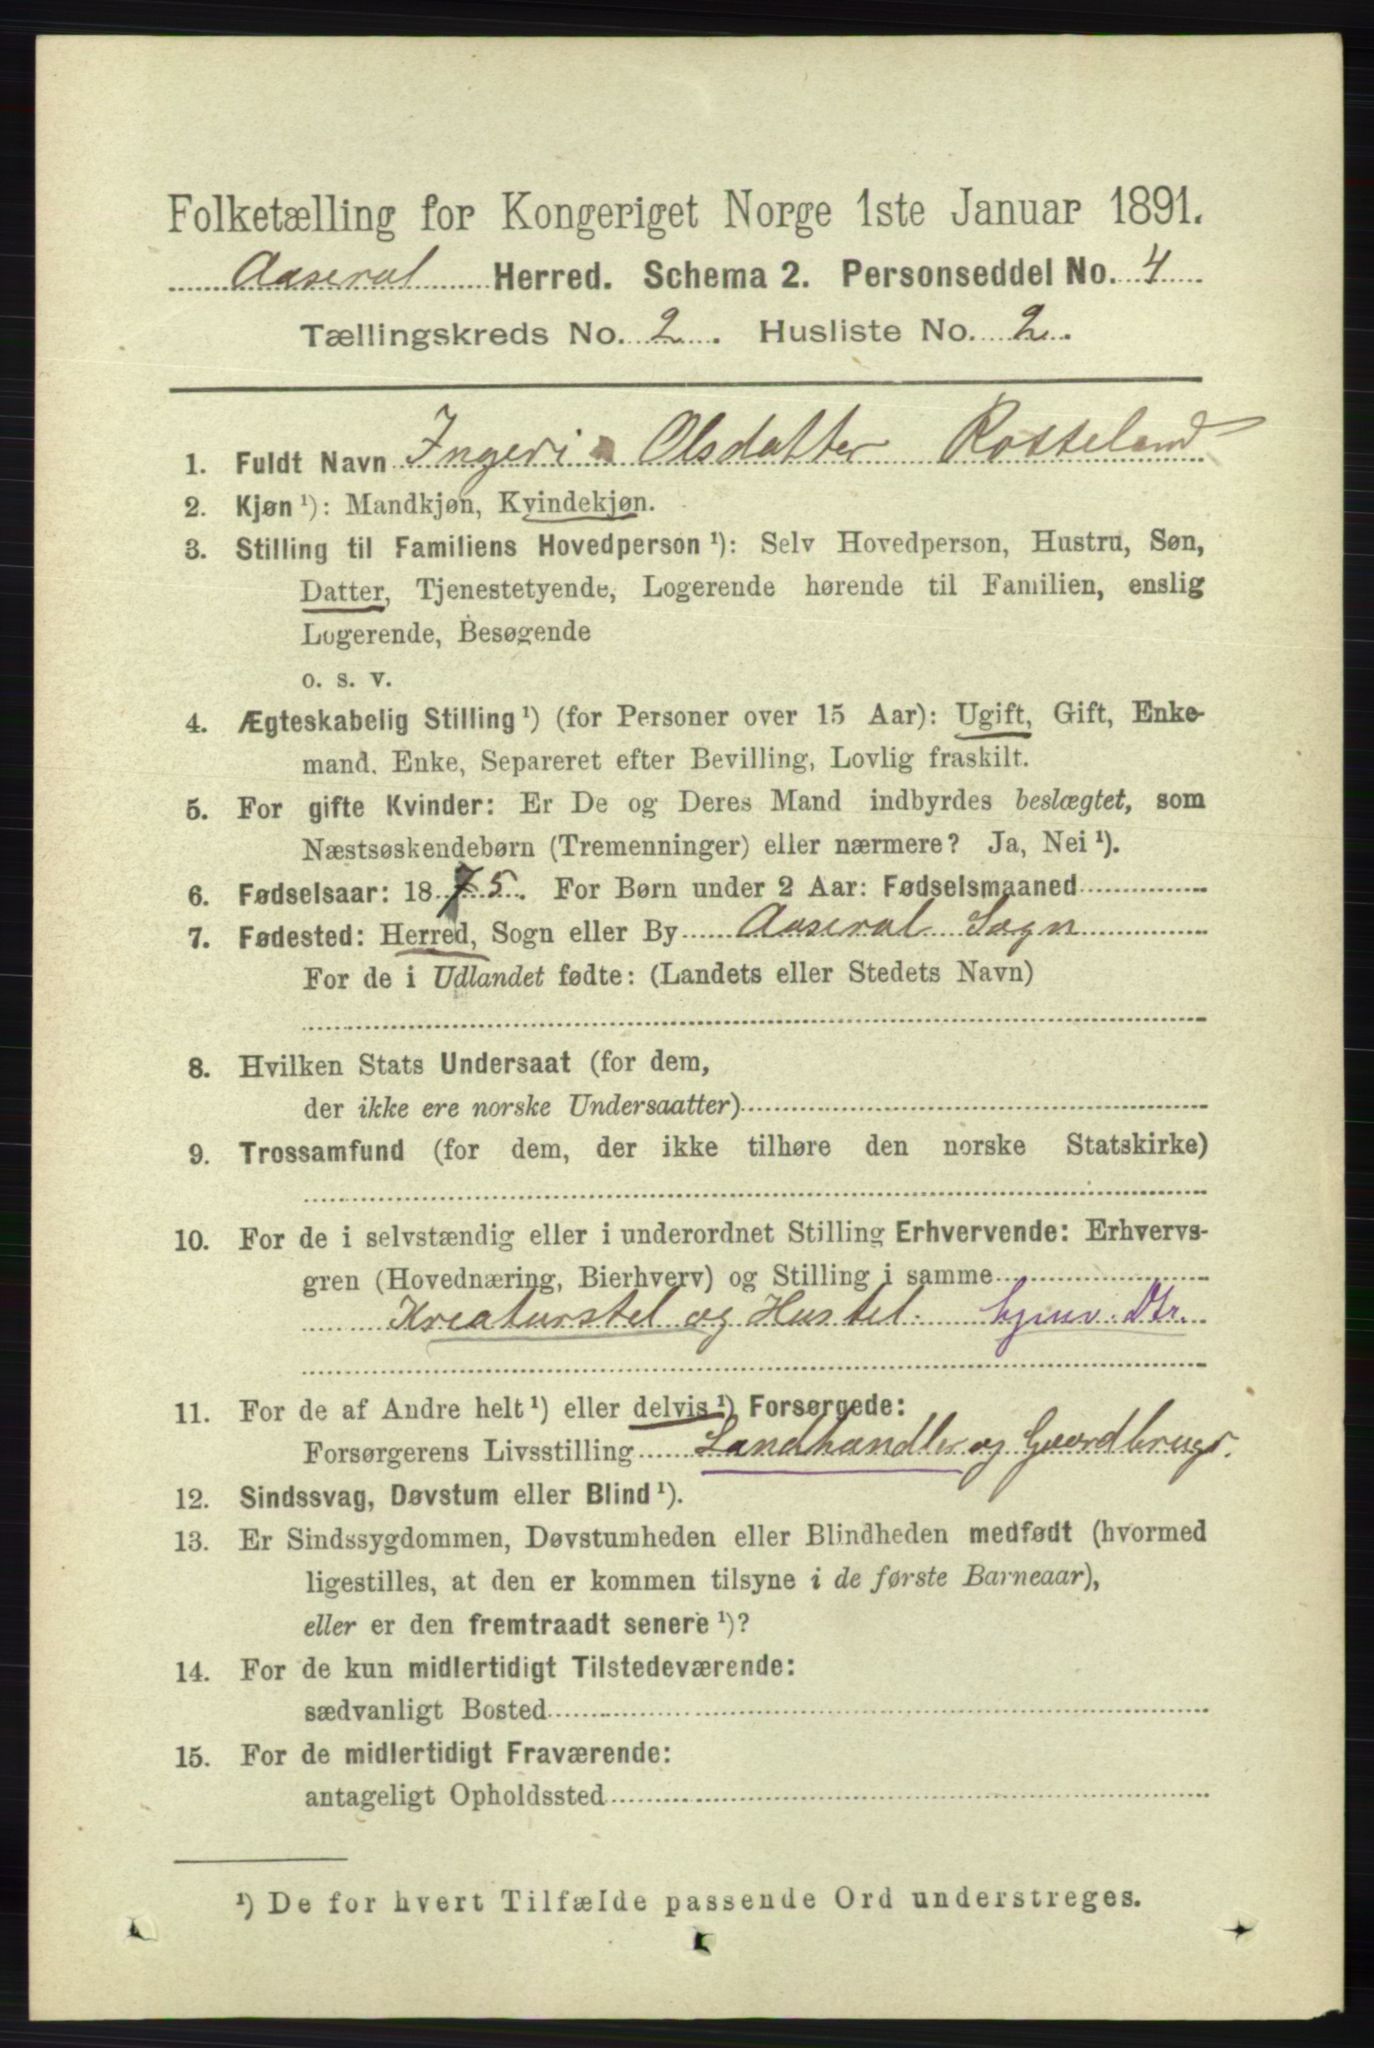 Folketælling for Kongeriget Norge 1ste Januar 1891.
Aaseral Herred. Schema 2. Personseddel No. 4
Tællingskreds No. 2. Husliste No. 2.
1. Fuldt Navn Ingeri Olsdatter Rosseland
2. Kjøn ¹): Mandkjøn, Kvindekjøn.
3. Stilling til Familiens Hovedperson ¹): Selv Hovedperson, Hustru, Søn,
Datter, Tjenestetyende, Logerende hørende til Familien, enslig
Logerende, Besøgende
o. s. v.
4. Ægteskabelig Stilling ¹) (for Personer over 15 Aar): Ugift, Gift, Enke-
mand, Enke, Separeret efter Bevilling, Lovlig fraskilt.
5. For gifte Kvinder: Er De og Deres Mand indbyrdes beslægtet, som
Næstsøskendebørn (Tremenninger) eller nærmere? Ja, Nei ¹).
6. Fødselsaar: 1875. For Børn under 2 Aar: Fødselsmaaned
7. Fødested: Herred, Sogn eller By Aaseral Sogn
For de i Udlandet fødte: (Landets eller Stedets Navn)
8. Hvilken Stats Undersaat (for dem,
der ikke ere norske Undersaatter)
9. Trossamfund (for dem, der ikke tilhøre den norske Statskirke)
10. For de i selvstændig eller i underordnet Stilling Erhvervende: Erhvervs-
gren (Hovednæring, Bierhverv) og Stilling i samme
Kreaturstel og Hustel. hjmv. Dtr.
11. For de af Andre helt ¹) eller delvis ¹) Forsørgede:
Forsørgerens Livsstilling Landhandler og Gaardbruger.
12. Sindssvag, Døvstum eller Blind ¹).
13. Er Sindssygdommen, Døvstumheden eller Blindheden medfødt (hvormed
ligestilles, at den er kommen tilsyne i de første Barneaar),
eller er den fremtraadt senere ¹)?
14. For de kun midlertidigt Tilstedeværende:
sædvanligt Bosted
15. For de midlertidigt Fraværende:
antageligt Opholdssted
¹) De for hvert Tilfælde passende Ord understreges.